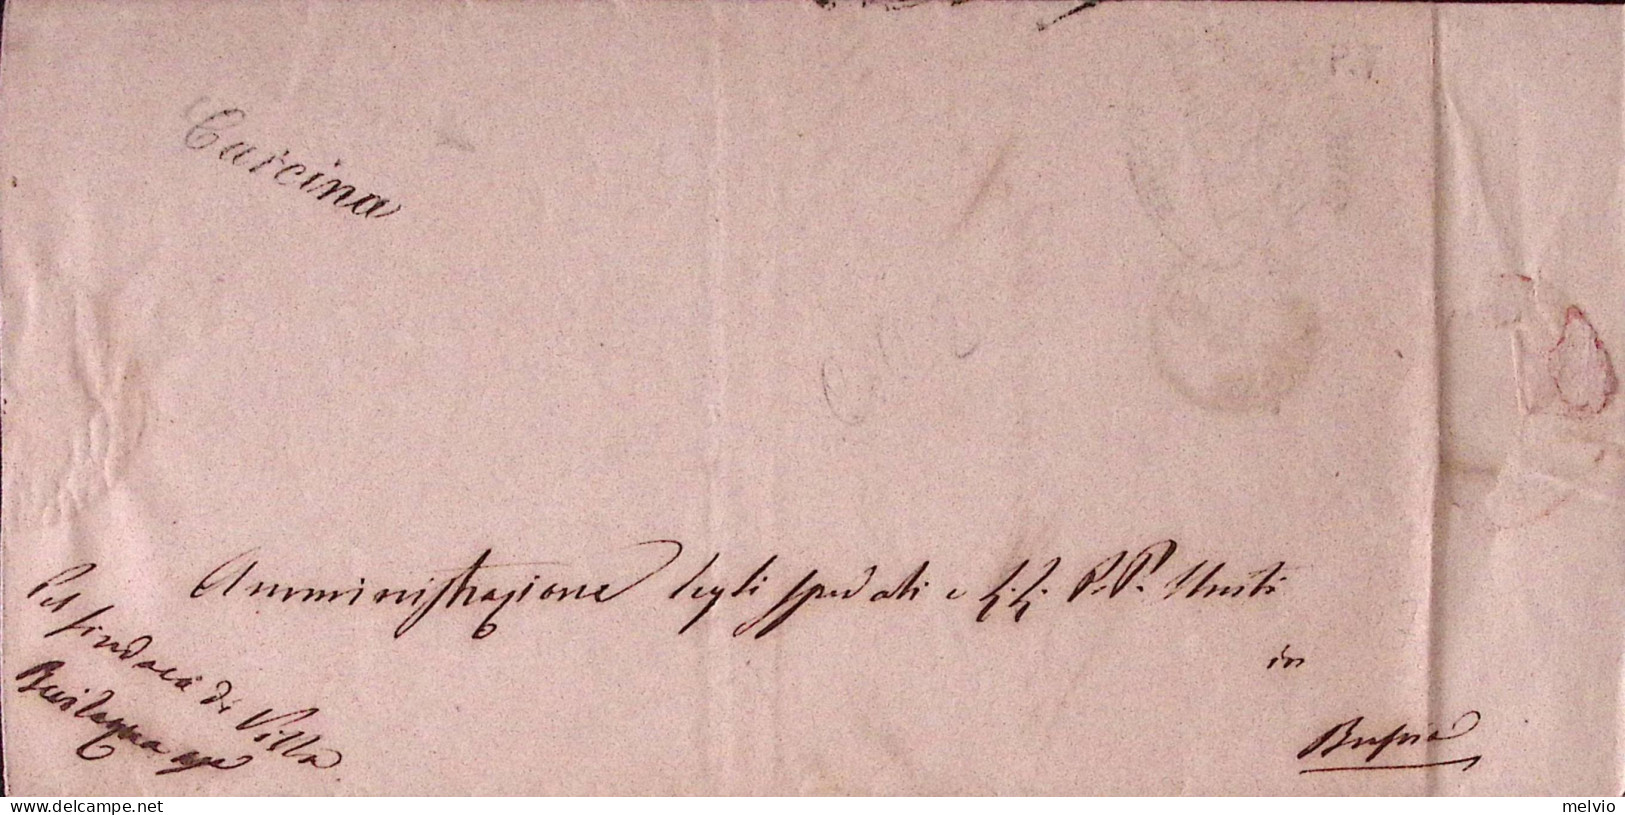 Carcina
Amministrazione degli spedali e L.L. P.P. Uniti
in
Brescia
Del sindaco di Villa
delcampe.net
melvio